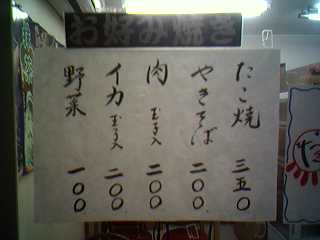 お好み焼き
たこ焼 三五〇
やきそば 二〇〇
肉 玉子入 二〇〇
イカ 玉子入 二〇〇
野菜 一〇〇